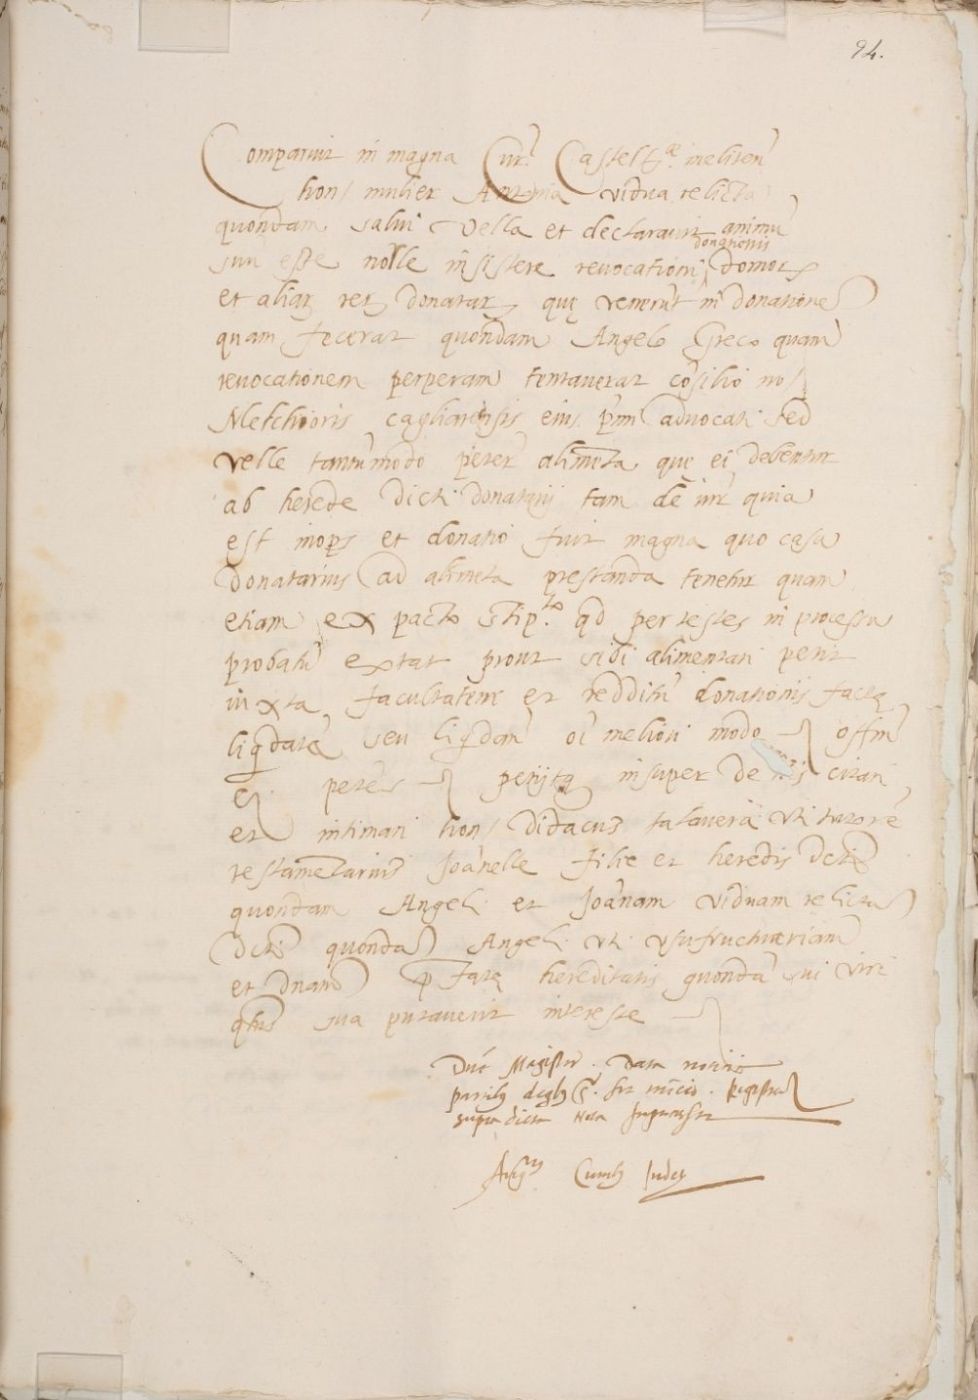 94.
Comparuit in magna Cur. Castell.æ meliten
hon/ mulier Antonia vidua relicta
quondam salvi Vella et declaravit animū
suū esse nolle insistere revocationi donationis domor
et aliar rer donatar, quę venerūt in donatione
quam fecerat quondam Angelo Greco quam
revocationem perperam tentaverat cōsilio no/
Melchioris cagliarēsis eius pm advocati sed
velle tantūmodo peter alimēta quę ei debentur
ab herede dicti donatarij tam de iur quia
est inops et donatio fuit magna quo casu
donatarius ad alimēta prestanda tenetur quam
etiam ex pacto stip.to qd per testes in processu
probatū extat prout sibi alimentari petit
iuxta facultatem et redditū donationis factę
liqdatā seu liqdan oi meliori modo offm
peter petijtq insuper de citari
et intimari hon/ Didacus talavera uti tutorē
testamētarius Joānelle filie et heredis dcti
quondam Angeli et Joānam viduam relictā
dcti quondā Angeli uti usufructuariam
et dnam pfatę hereditatis quondā sui viri
qtus sua putaverit interesse
Magister Data
Registra
supra dicta Nota
Cumbo Judex